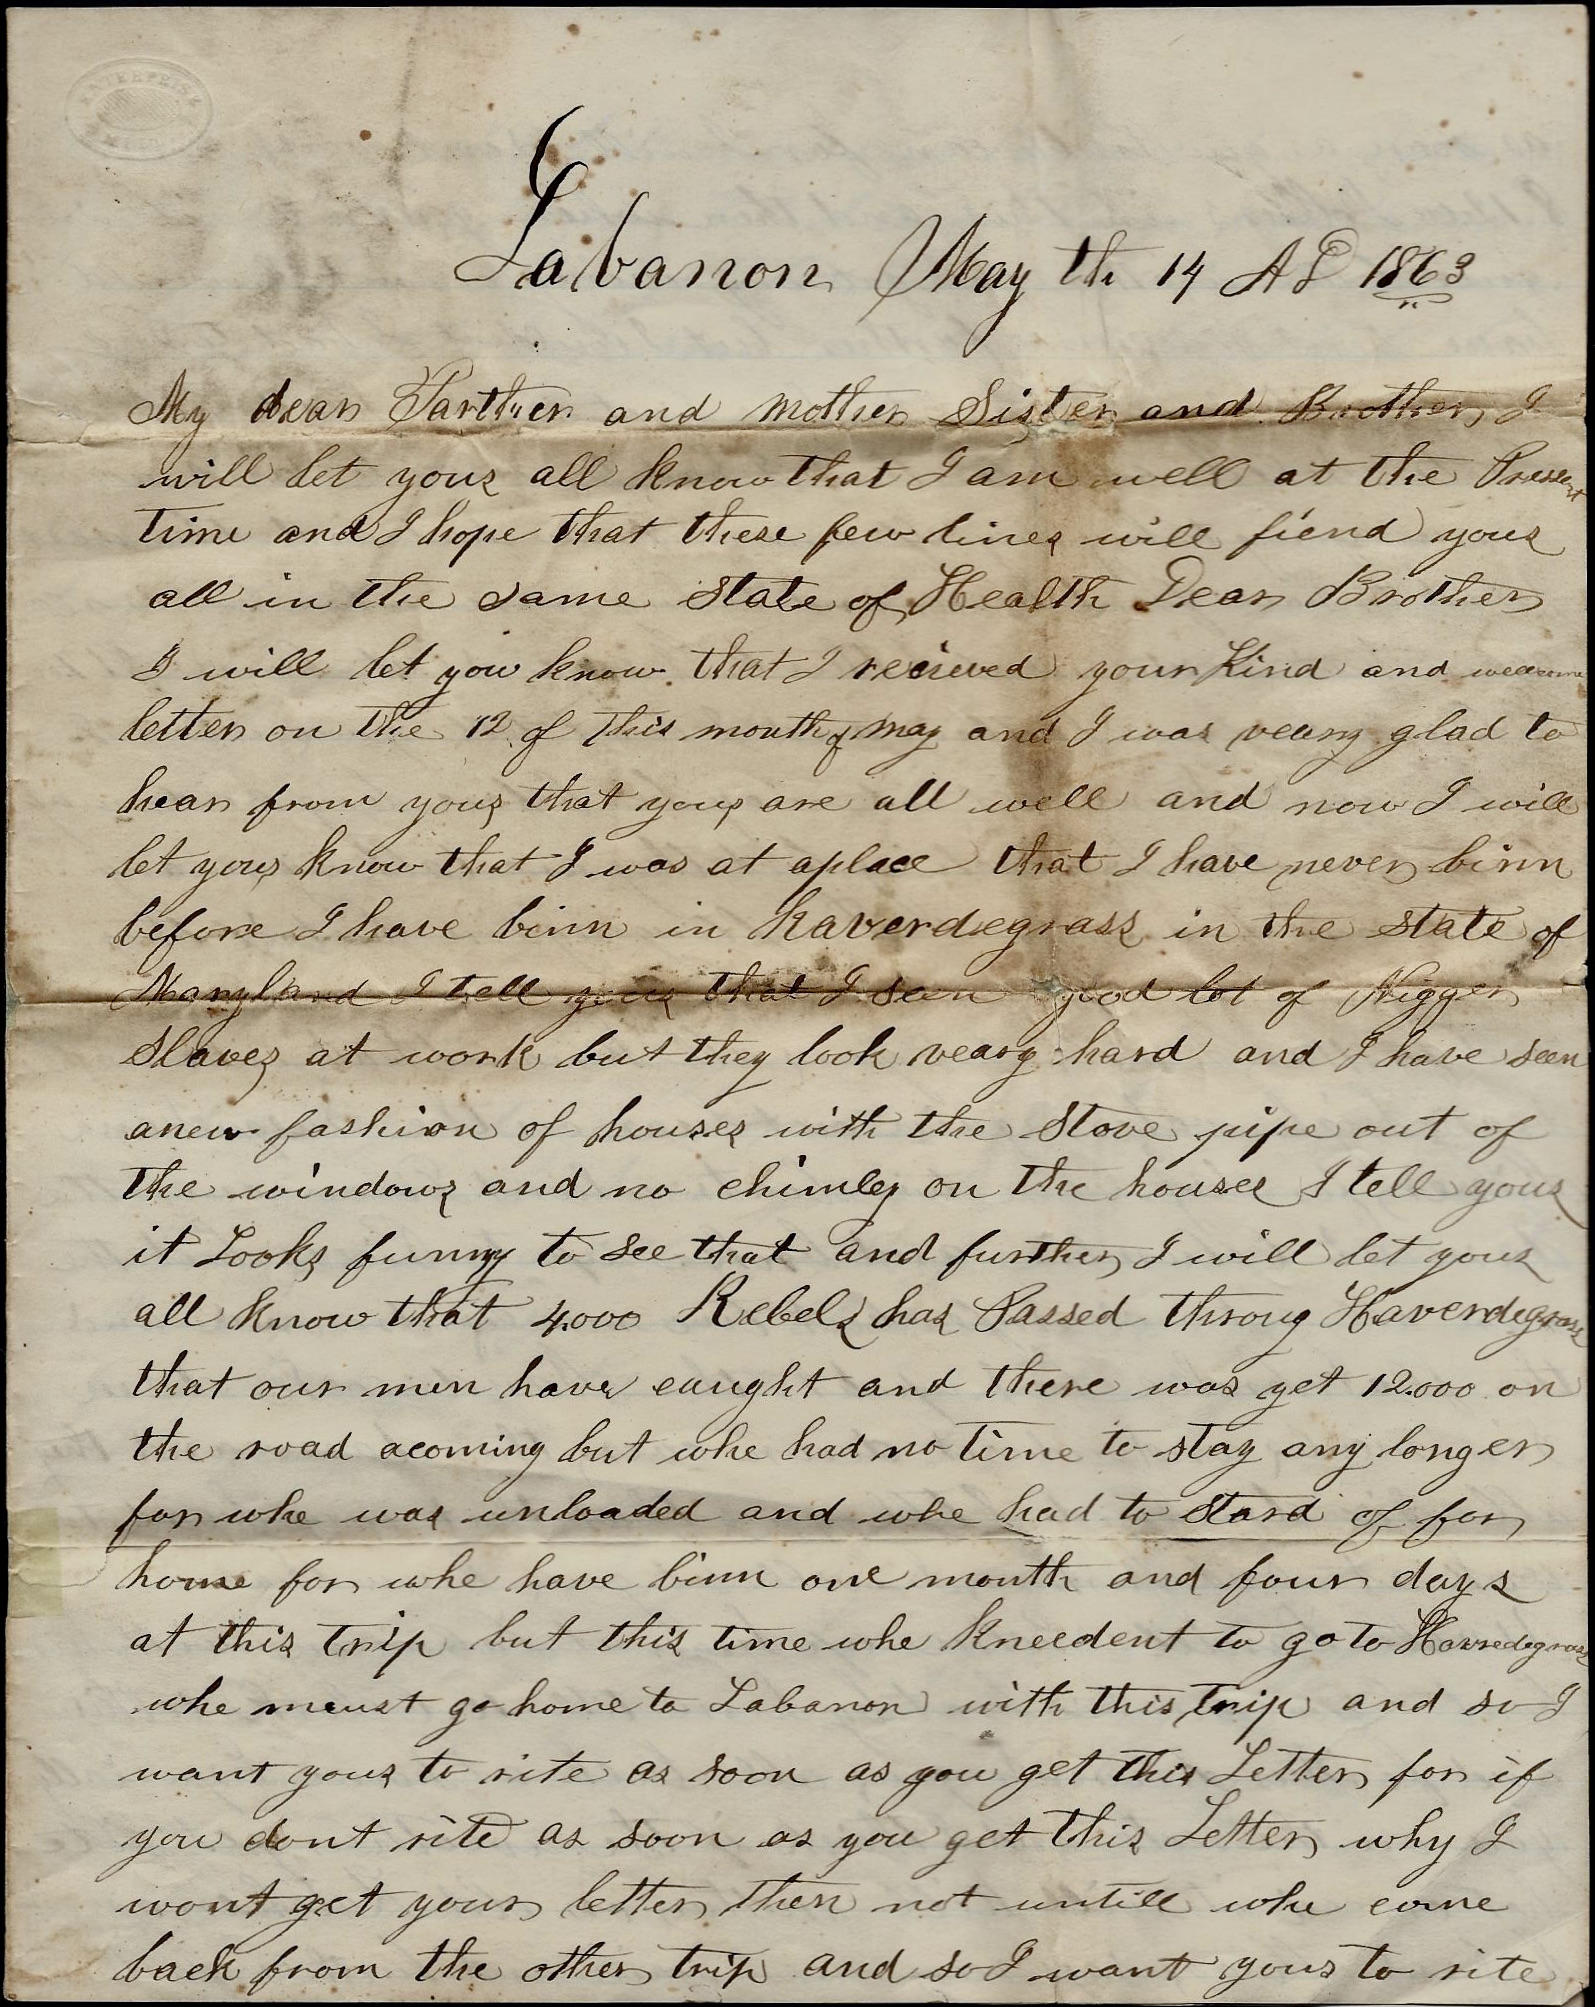 ENTERPRISE
Labanon May th 14 AD 1863
My dear Farther and mother Sister and Brother, I
will let yous all know that I am well at the Present
time and I hope that these few lines will fiend yous
all in the same state of Health Dear Brother
I will let you know that I recieved your Kind and wellcome
letter on the 12 of this month of may and I was veary glad to
hear from yous that yous are all well and now I will
let yous know that I was at aplace that I have never binn
before I have binn in haverdegrass in the State of
Maryland I tell yous that I seen good lot of Nigger
Slaves at work but they look veary hard and I have seen
anew fashion of houses with the Stove pipe out of
the windows and no chimley on the houses I tell yous
it Looks funny to see that and further I will let yous
all know that 4.000 Rebels has Passed throug Haverdegrass
that our men have caught and there was yet 12.000 on
the road acoming but whe had no time to stay any longer
for whe was unloaded and whe had to stard of for
home for whe have binn one month and four days
at this trip but this time whe kneedent to go to Havredegrass
whe meust go home to Labanon with this trip and so I
want yous to rite as soon as you get this Letter for if
you dont rite as soon as you get this Letter why I
wont get your letter then not untill whe come
back from the other trip and so I want yous to rite